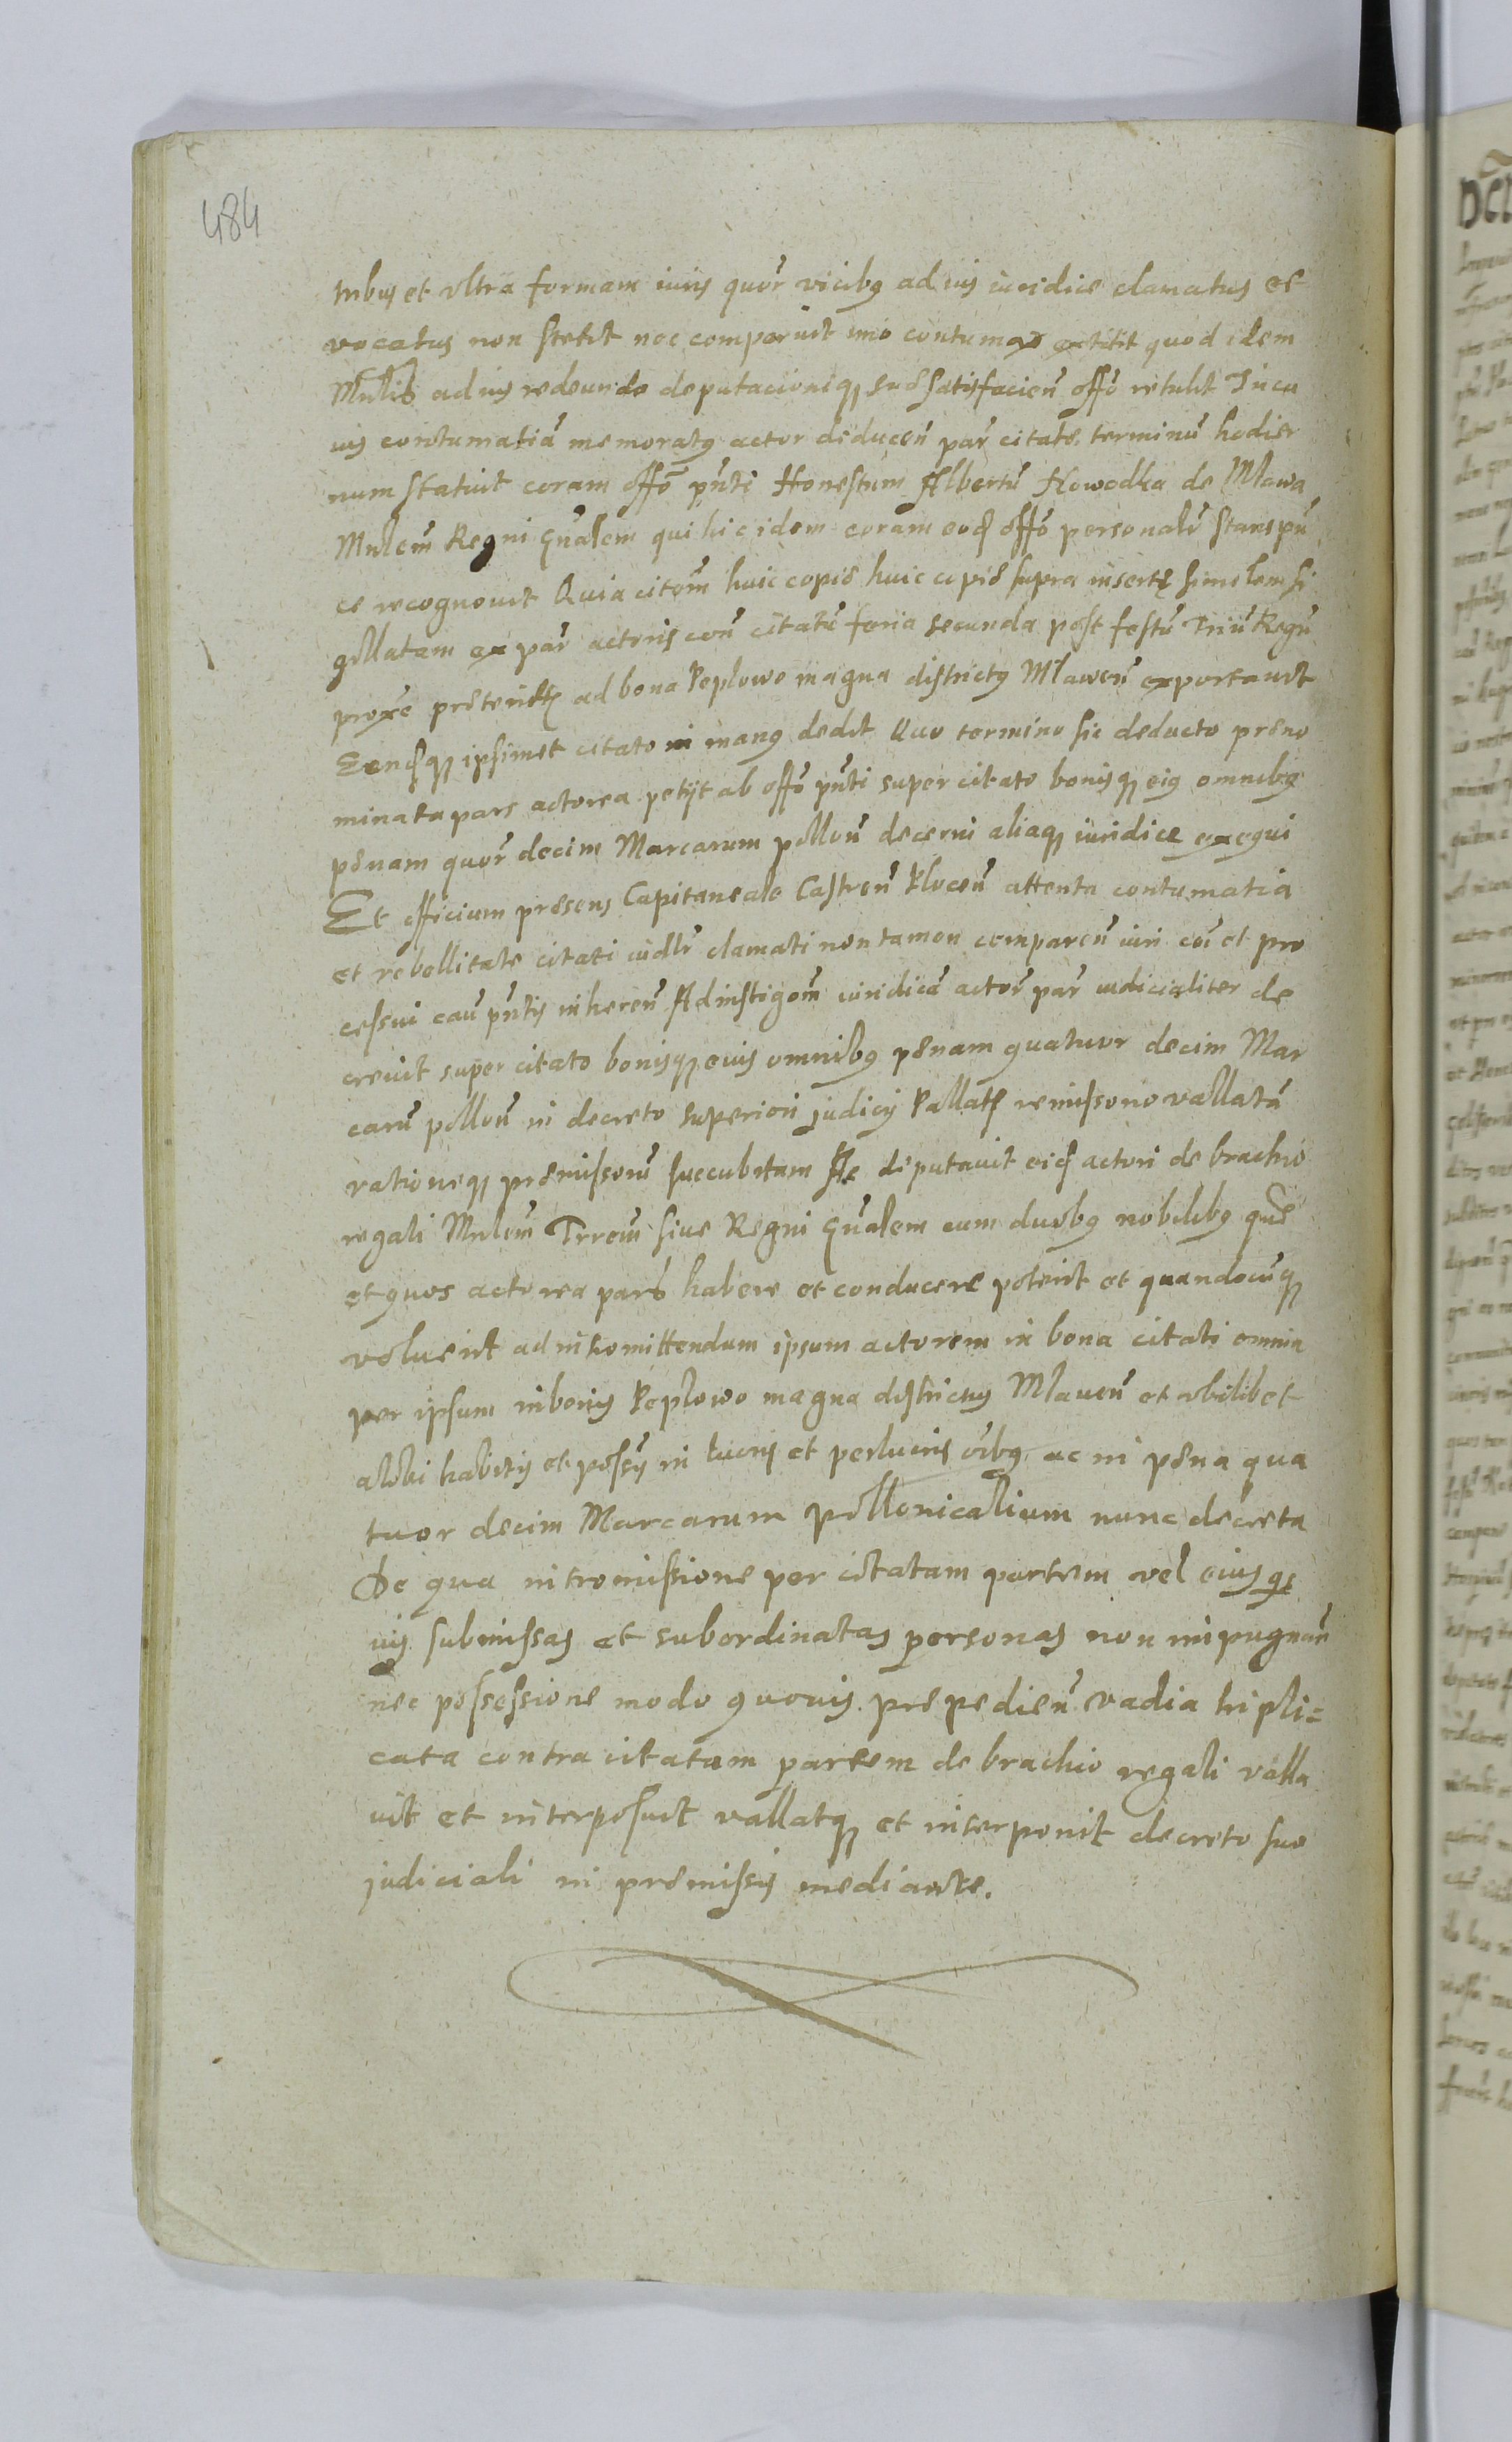 484
tribus et vltra formam iuris quor vicibq ad ius iuridice clamatus et
vocatus non stetit nec comparuit imo contumax extitit quod idem
Mnlis ad ius redeundo deputacioniq suæ satisfacien offo retulit In cu
ius contumatiã memoratq actor deducen par citate terminũ hodier
num statuit coram offo pnti Honestum Albertũ Nowodka de Mlawa
Mnlem Regni Gnalem qui hic idem coram eod offo personalr stans pn
ce recognouit Quia citom huic copiæ huic copiæ supra insertę similem si
gillatam ex par actoris con citatũ feria secunda post festũ Triũ Regũ
proxe præterit ad bona Peplowo magna districtq Mlawen exportauit
Eandq ipsimet citato in manq dedit Quo termino sic deducto præno
minata pars actorea petijt ab offo pnti super citato bonisq eiq omnibq
pænam quor decim Marcarum pollon decerni aliaq iuridice exequi
Et officium præsens Capitaneale Castren Plocen attenta contumatia
et rebellitate citati iudlr clamati non tamen comparen iuri coi et pro
cessui cau pntis inheren Ad instigom iuridicã actor par iudicialiter de
creuit super citato bonisq euis omnibq pænam quatuor decim Mar
carũ pollon in decreto superiori judicij Pallats remissorio vallatã
rationeq præmissorũ succubitam Ac deputauit eid actori de brachio
regali Mnlem Trrem siue Regni Gnalem cum duobq nobilibq quæ
et quos actorea pars habere et conducere poterit et quandocunq
voluerit ad intromittendum ipsum actorem in bona citati omnia
per ipsum in bonis Peplowo magna districtus Mlauen et vbilibet
alibi habitis et possis in lucris et perlucris oibq ac in pæna qua
tuor decim Marcarum pollonicalium nunc decreta
De qua intromissione per citatam partem vel eius qs
uis submissas et subordinatas personas non impugnan
nec possessione modo quouis præpedien vadia tripli=
cata contra citatam partem de brachio regali valla
uit et interposuit vallatq et interponit decreto suo
judiciali in præmissis mediante.